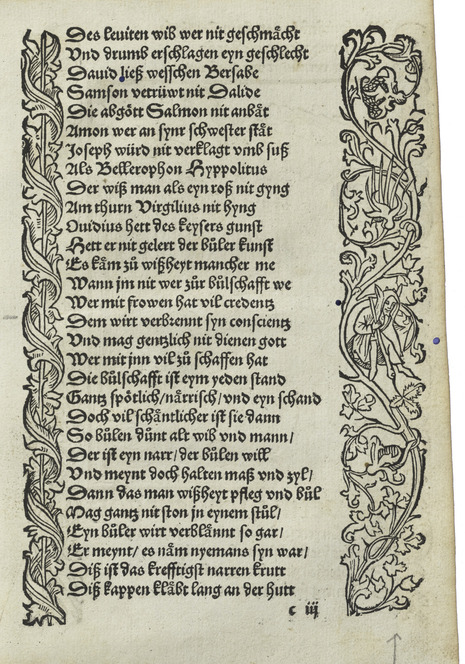 Des leuiten wib wer nit geschmächt
Vnd drumb erschlagen eyn geschlecht
Dauid ließ wesschen Bersabe
Samson vetrüwt nit Dalide
Die abgött Salmon nit anbät
Amon wer an synr schwester stät
Joseph würd nit verklagt vmb suß
Als Bellerophon Hyppolitus
Der wiß man als eyn roß nit gyng
Am thurn Virgilius nit hyng
Ouidius hett des keysers gunst
Hett er nit gelert der büler kunst
Es käm zů wißheyt mancher me
Wann jm nit wer zůr bůlschafft we
Wer mit frowen hat vil credentz
Dem wirt verbrennt syn conscientz
Vnd mag gentzlich nit dienen gott
Wer mit jnn vil zů schaffen hat
Die bůlschafft ist eym yeden stand
Gantz spötlich/närrisch/vnd eyn schand
Doch vil schäntlicher ist sie dann
So bůlen dünt alt wib vnd mann/
Der ist eyn narr/der bůlen will
Vnd meynt doch halten maß vnd zyl/
Dann das man wißheyt pfleg vnd bůl
Mag gantz nit ston in eynem stůl/
Eyn bůler wirt verblännt so gar/
Er meynt/es näm nyemans syn war/
Diß ist das krefftigst narren krutt
Diß kappen kläbt lang an der hutt
c iij